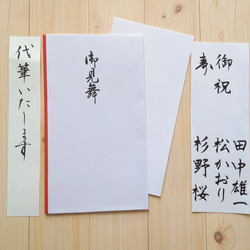 御祝
寿
田中雄一
松かおり
杉野桜
御見舞
代筆いたします